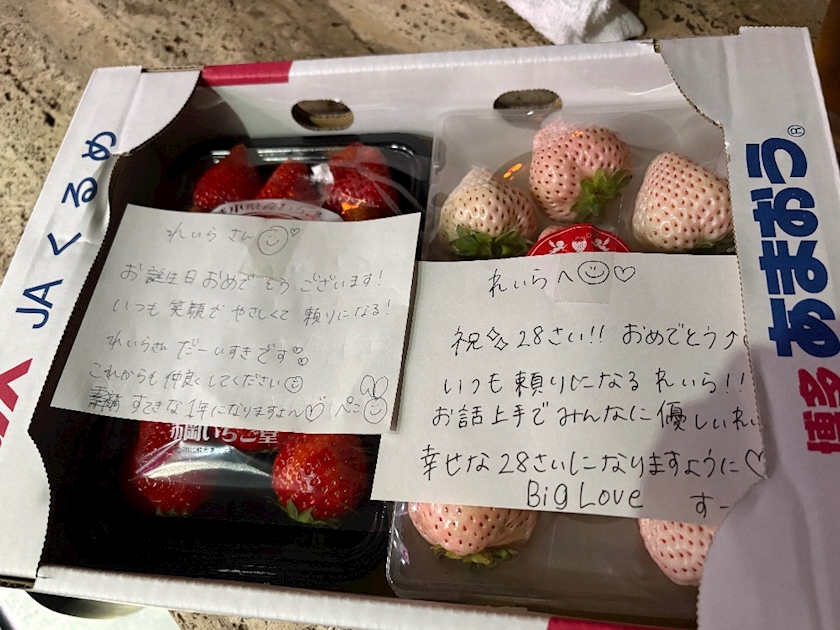 JAくるめ
れいらさん
お誕生日おめでとうございます!
いつも笑顔でやさしくて頼りになる!
れいらさんだーいすきです
これからも仲良くしてください
すてきな1年になりますよーに
ぺこ
いちご堂
れいらへ
祝☆28さい!! おめでとう
いつも頼りになるれいら!!
お話上手でみんなに優しいれい
幸せな28さいになりますように
Big Love
すー
博多あまおう®